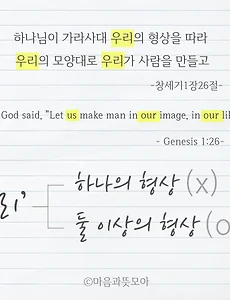 하나님이 가라사대 우리의 형상을 따라
우리의 모양대로 우리가 사람을 만들고
-창세기1장26절-
God said, "Let us make man in our image, in our
- Genesis 1:26-
하나의 형상 (x)
둘 이상의 형상 (o
©마음과뜻모아